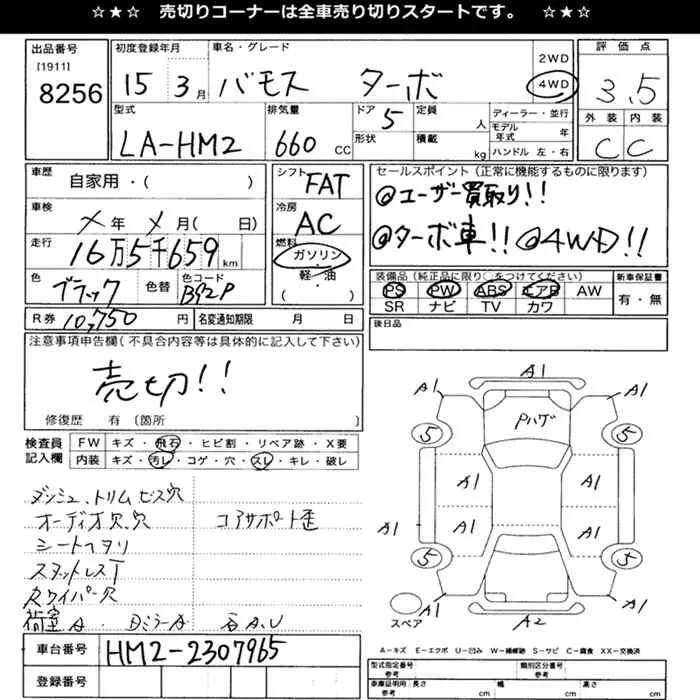 ☆★☆ 売切りコーナーは全車売り切りスタートです。 ☆★☆
出品番号 初度登録年月 車名・グレード 評価点
[1911] 8256 15 3月 バモス ターボ 2WD 4WD 3.5
型式 排気量 ドア 定員 ディーラー・並行 外装 内装
LA-HM2 660cc 5 人 モデル年式 年 C C
形状 積載 kg ハンドル 左・右
車歴 自家用・( ) シフト FAT セールスポイント(正常に機能するものに限ります)
車検 メ年 メ月( 日) 冷房 AC @ユーザー買取り!!
走行 16万5千659km 燃料 ガソリン・軽・油 ( ) @ターボ車!! @4WD!!
色 ブラック 色替 色コード B92P
装備品(純正品に限り○をつけてください) 新車保証書
PS PW ABS エアB AW 有・無
SR ナビ TV カワ
R券 10,750円 名変通知期限 月 日 後日品
注意事項申告欄(不具合内容等は具体的に記入して下さい)
売切!!
修復歴 有 〔箇所 〕
検査員記入欄 FW キズ・飛石・ヒビ割・リペア跡・X要
内装 キズ・汚レ・コゲ・穴・スレ・キレ・破レ
ダッシュ、トリムビス穴
オーディオ欠.穴 コアサポート歪
シートヘタリ
スタットレスT
Rワイパー欠
荷室A
A1
A1 A1
Pハゲ
5 5
A1 A1
A1 A1
A1 A1
5 5
A1 A1
スペア A2
A-キズ E-エクボ U-凹み W-補修跡 S-サビ C-腐食 XX-交換済
車台番号 HM2-2307965
登録番号
型式指定番号 参考 類別区分番号 参考
車庫証明用 参考 長さ cm 幅 cm 高さ cm